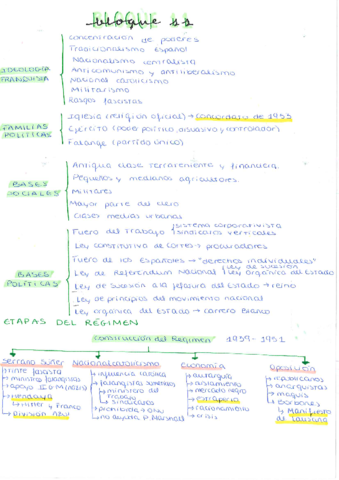 Bloque 11
Concentración de poderes
Tradicionalismo Español
Nacionalismo centralista
IDEOLOGÍA FRANQUISTA
Anticomunismo y antiliberalismo
Nacional catolicismo
Militarismo
Rasgos fascistas
FAMILIAS POLÍTICAS
Iglesia (religión oficial) → Concordato de 1953
Ejército (poder político, disuasivo y controlador)
Falange (partido único)
Antigua clase terrateniente y financiera
Pequeños y medianos agricultores
BASES SOCIALES
Militares
Mayor parte del clero
Clases medias urbanas
Fuero del Trabajo
sistema corporativista
sindicatos verticales
Ley constitutiva de cortes → procuradores
Fuero de los Españoles → "derechos individuales"
BASES POLÍTICAS
Ley de Referendum Nacional
Ley de sucesión
Ley orgánica del Estado
Ley de sucesión a la jefatura del Estado → reino
Ley de principios del movimiento nacional
Ley orgánica del estado → carrero Blanco
ETAPAS DEL RÉGIMEN
Construcción del Régimen 1939-1951
Serrano Suñer
ministros falangistas
Hitler y Franco
División Azul
Nacionalcatolicismo
influencia católica
falangistas sometidos
ministro del Trabajo
sindicatos
no ayuda P. Marshall
Economía
autarquía
aislamiento
mercado negro
estraperlo
racionamiento
crisis
Oposición
republicanos
anarquistas
maquis
Borbones
Manifiesto de Lausana